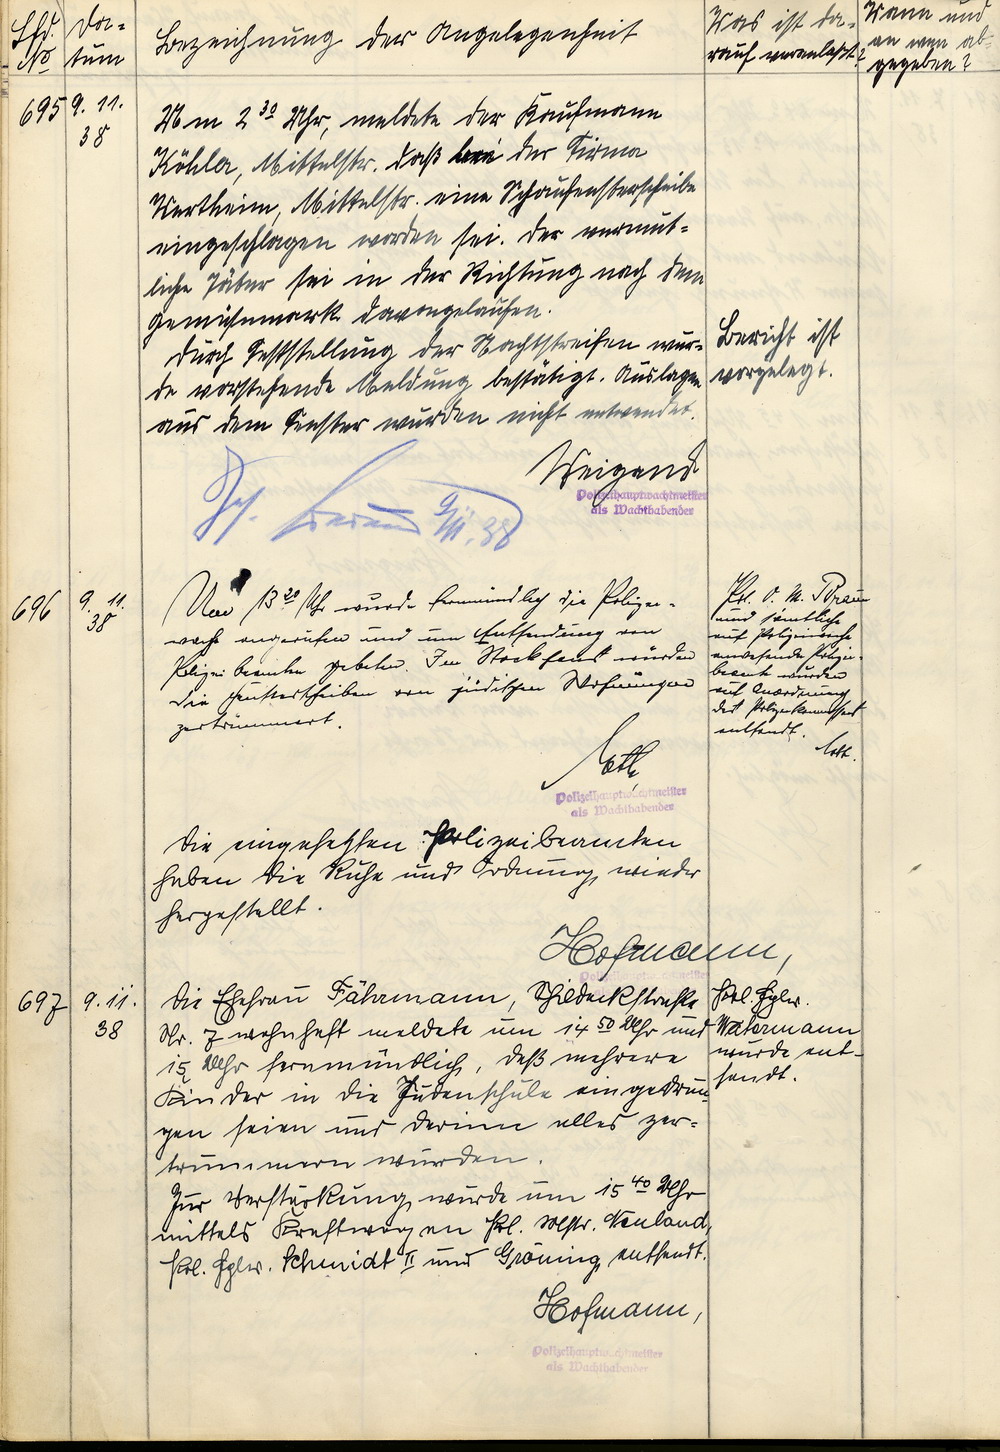 Lfd. No
Da-
tum
Bezeichnung der Angelegenheit
Was ist da-
rauf veranlaßt?
Wann und
an wen ab-
gegeben?
695
9. 11.
38
Um 2³⁰ Uhr, meldete der Kaufmann
Köhler, Mittelstr. daß bei der Firma
Wertheim, Mittelstr. eine Schaufensterscheibe
eingeschlagen worden sei. Der vermut-
liche Täter sei in der Richtung nach dem
Gemüsemarkt davongelaufen.
Durch Feststellung der Nachtstreifen wur-
de vorstehende Meldung bestätigt. Auslagen
aus dem Fenster wurden nicht entwendet.
Bericht ist
vorgelegt.
Weigand
Polizeihauptwachtmeister
als Wachthabender
9/11.38
696
9. 11.
38
Um 13²⁰ Uhr wurde fernmündlich die Polizei-
wache angerufen und um Entsendung von
Polizeibeamten gebeten. Im Stockhaus würden
die Fensterscheiben von jüdischen Wohnungen
zertrümmert.
Pol. O. M. Braun
und sämtliche
auf Polizeiwache
anwesende Polizei-
beamte wurden
auf Anordnung
des Polizeikommissars
entsandt.
Polizeihauptwachtmeister
als Wachthabender
Die eingesetzten Polizeibeamten
haben die Ruhe und Ordnung wieder
hergestellt.
Hofmann,
697
9. 11.
38
Die Ehefrau Fährmann, Schildeckstraße
Nr. 7 wohnhaft meldete um 14⁵⁰ Uhr und
15 Uhr fernmündlich, daß mehrere
Kinder in die Judenschule eingedrun-
gen seien und darinn alles zer-
trümmern würden.
Zur Verstärkung wurde um 15⁴⁰ Uhr
mittels Kraftwagen Pol. Mstr. Neuland,
Pol. Hglw. Schmidt II und Gröning entsandt.
Pol. Hglw.
Watermann
wurde ent-
sandt.
Hofmann,
Polizeihauptwachtmeister
als Wachthabender